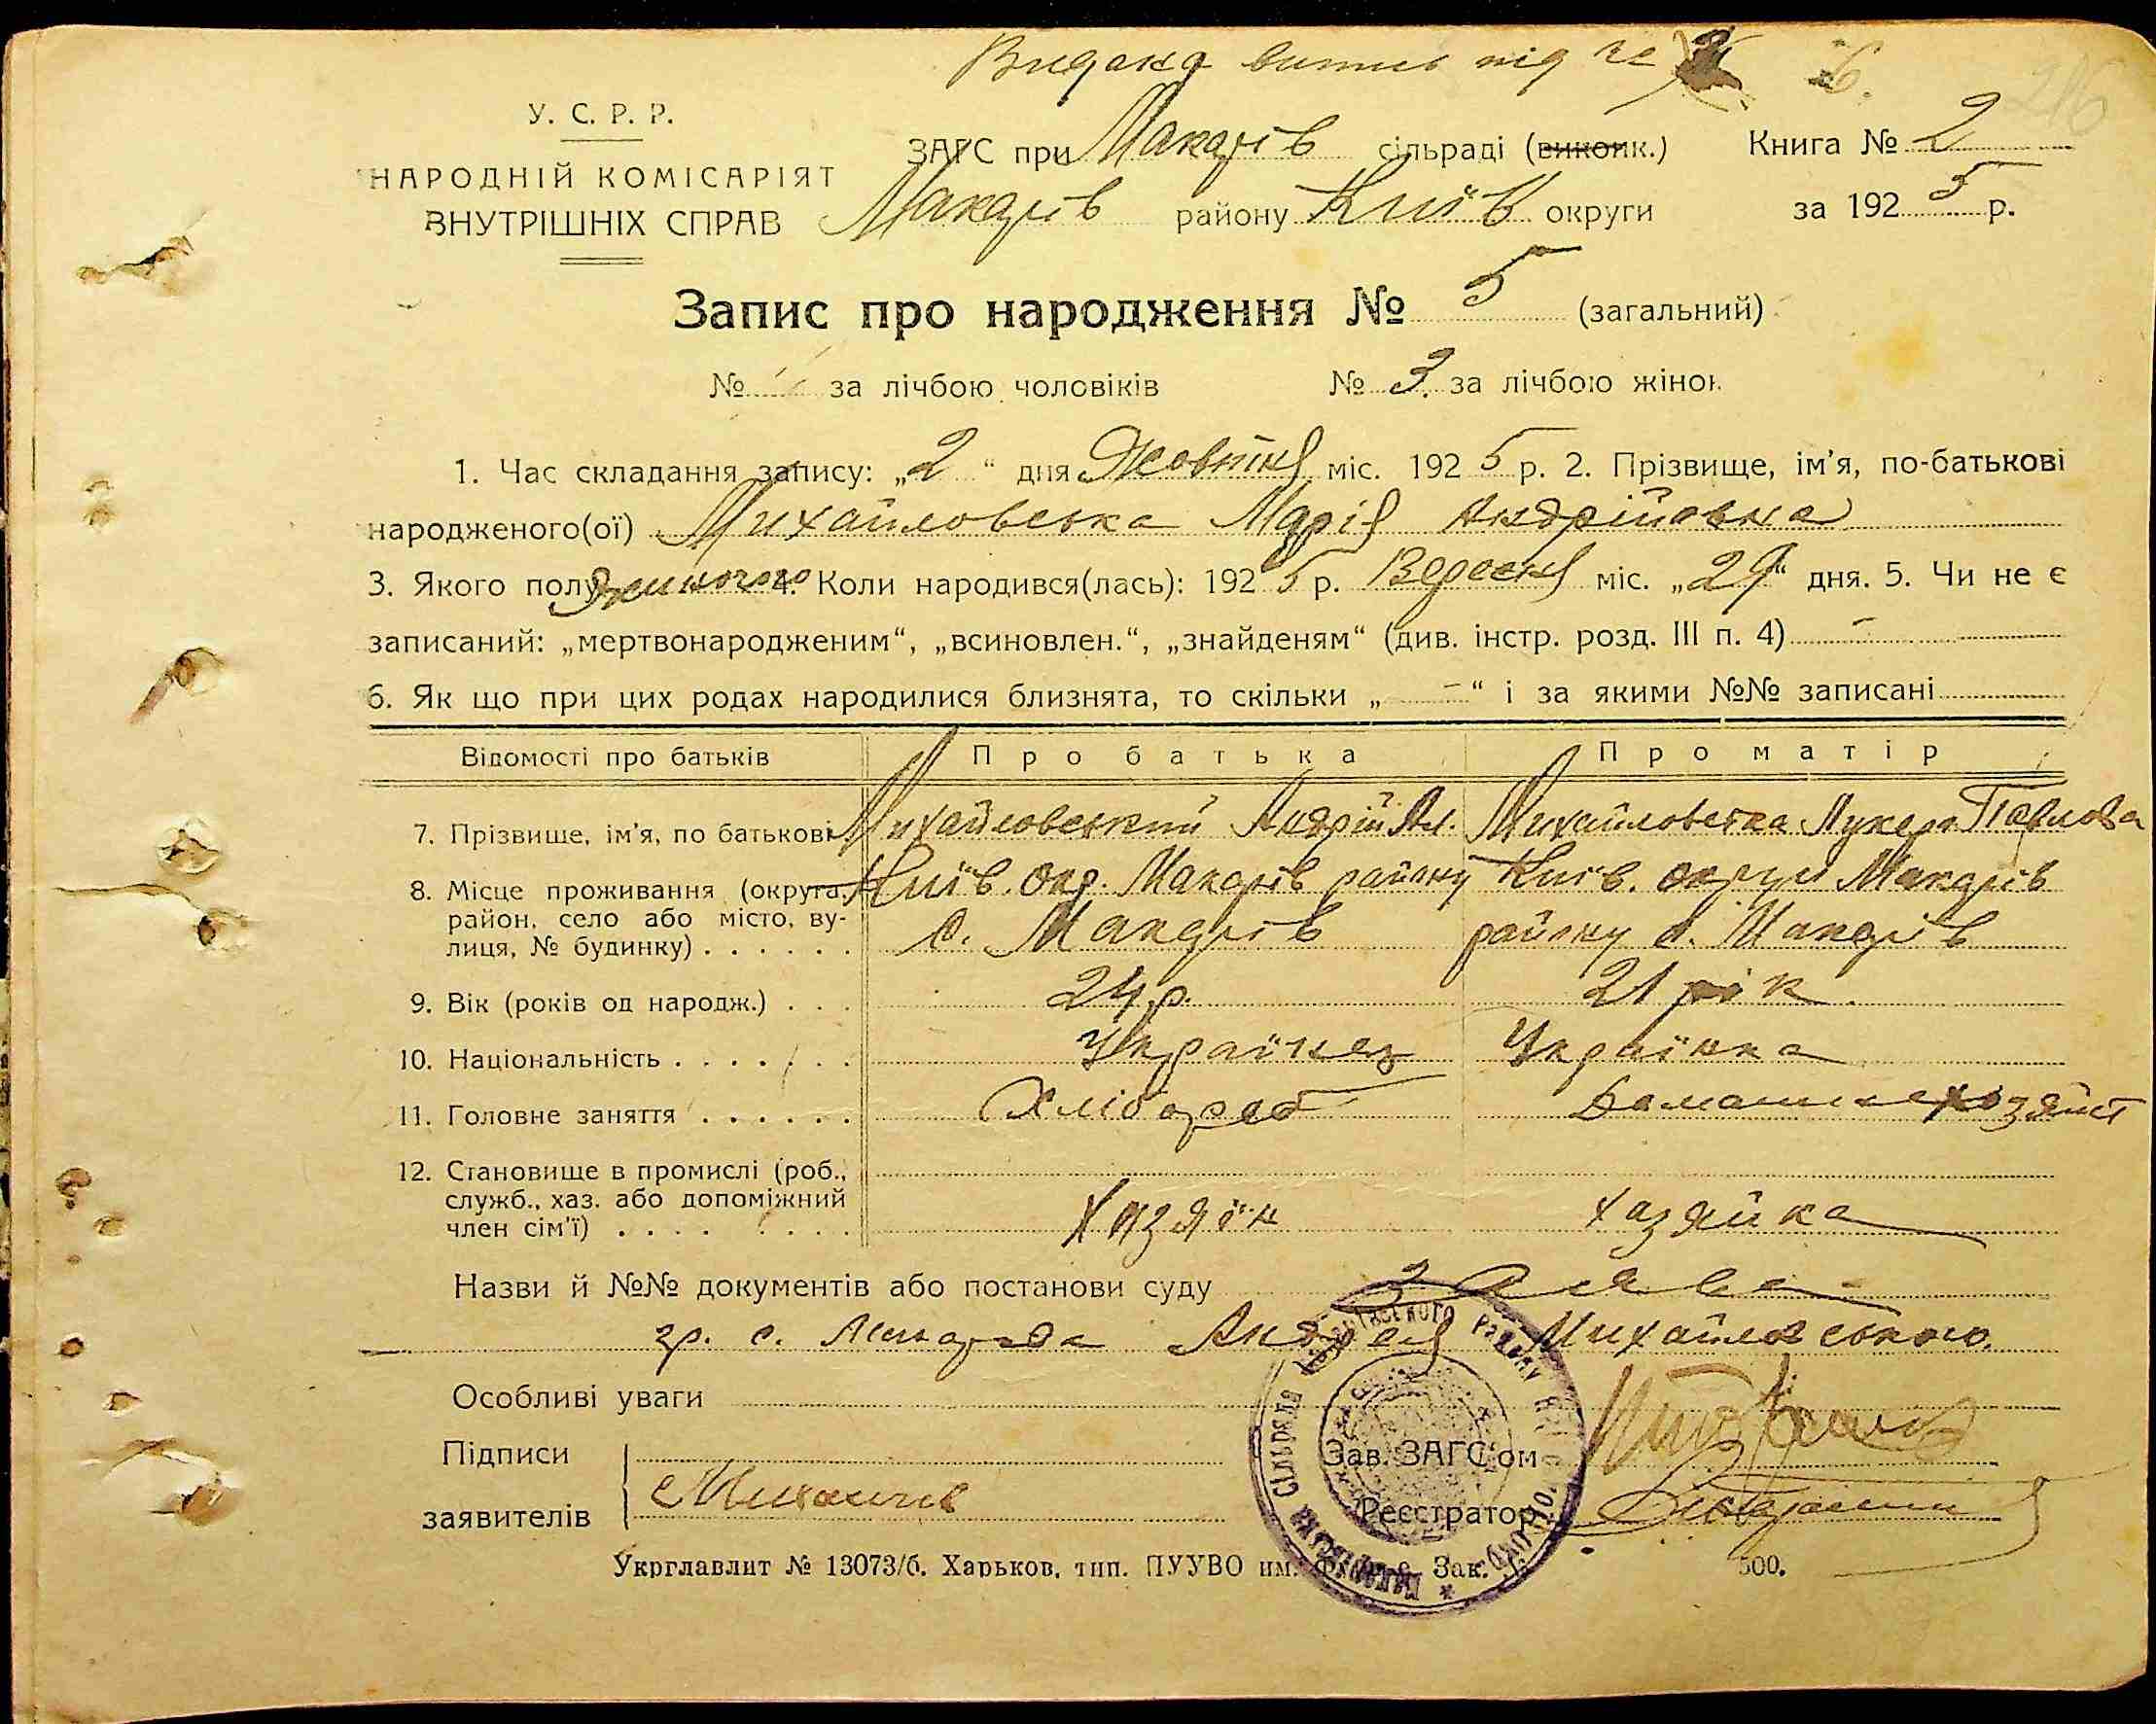 Видана витяг під № 6.
216
У. С. Р. Р.
НАРОДНІЙ КОМІСАРІЯТ
ВНУТРІШНІХ СПРАВ
ЗАГС при Макарів сільраді (виконк.) Книга № 2
Макарів району Київ округи за 1925 р.
Запис про народження № 5 (загальний)
№ за лічбою чоловіків № 3. за лічбою жінок
1. Час складання запису: „2“ дня Жовтня міс. 1925 р. 2. Прізвище, ім’я, по-батькові
народженого(ої) Михайловська Марія Андрійовна
3. Якого полу жіночого 4. Коли народився(лась): 1925 р. Вересня міс. „29“ дня. 5. Чи не є
записаний: „мертвонародженим“, „всиновлен.“, „знайденям“ (див. інстр. розд. III п. 4) -
6. Як що при цих родах народилися близнята, то скільки „-“ і за якими №№ записані
Відомості про батьків Про батька Про матір
7. Прізвище, ім’я, по батькові Михайловський Андрій Ол. Михайловська Лукера Павлова
8. Місце проживання (округа, Київ. окр. Макарів району Київ. округи Макарів
район, село або місто, ву- с. Макарів району с. Макарів
лиця, № будинку)
9. Вік (років од народж.) 24 р. 21 рік
10. Національність Українец Українка
11. Головне заняття Хлібороб Домашнє хозяйст
12. Становище в промислі (роб.,
служб., хаз. або допоміжний Хазяїн хазяйка
член сім’ї)
Назви й №№ документів або постанови суду Заява
гр. с. Макарова Андрея Михайловського.
Особливі уваги
Підписи Зав. ЗАГС’ом
заявителів Реєстратор
Укрглавлит № 13073/б. Харьков, тип. ПУУВО им. Фрунзе. Зак. 500.
Макарівська Сільрада Макарівського району